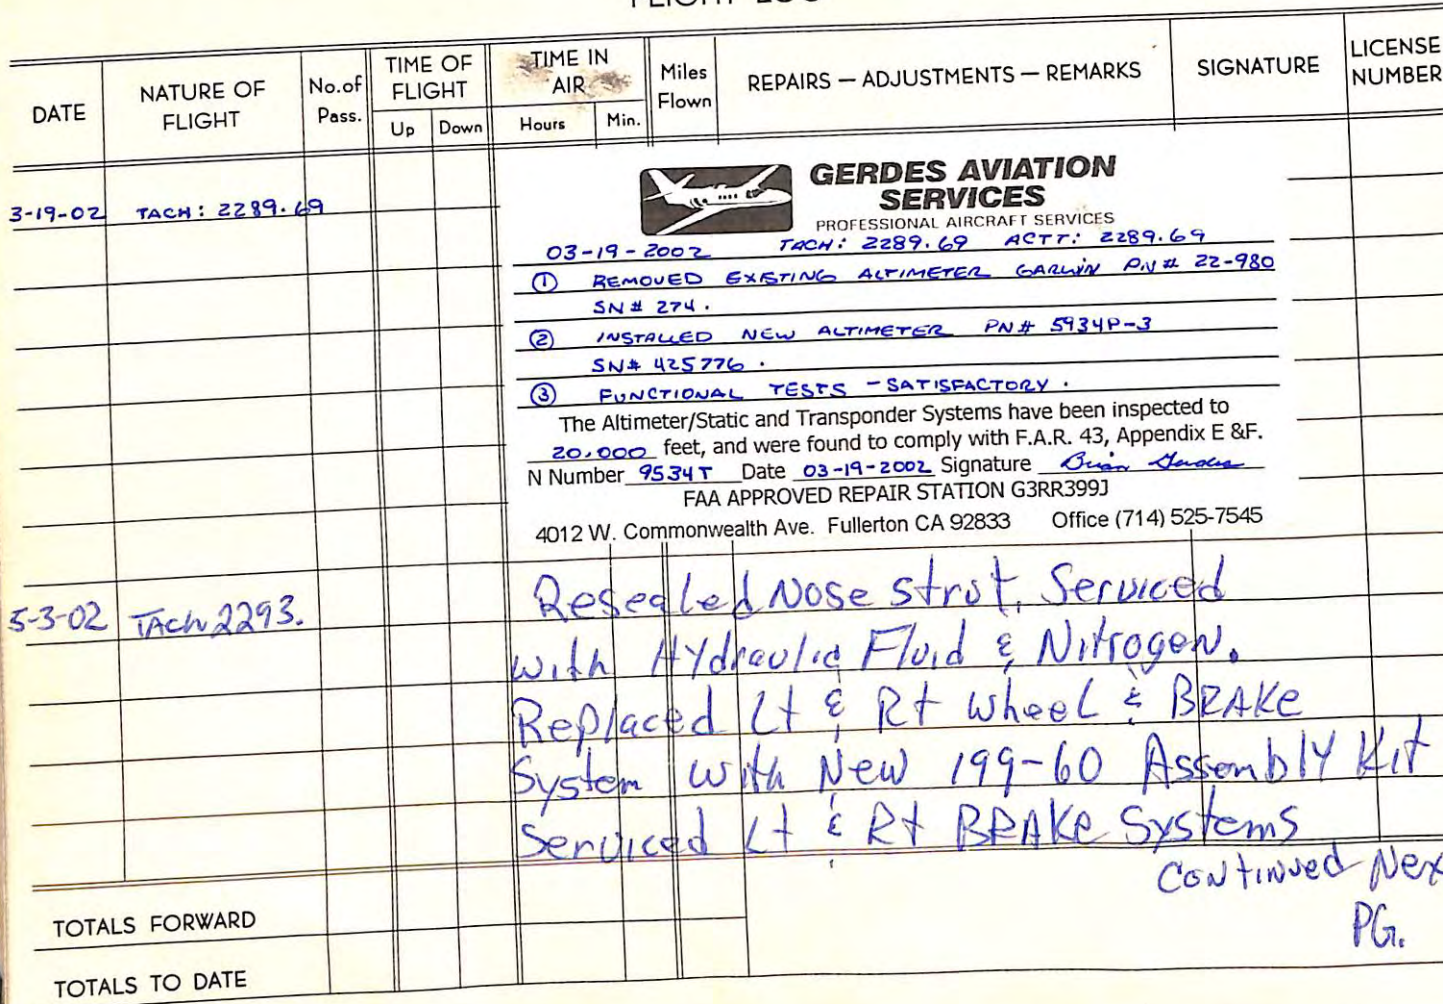 FLIGHT LOG
DATE
NATURE OF FLIGHT
No.of Pass.
TIME OF FLIGHT
Up Down
TIME IN AIR
Hours Min.
Miles Flown
REPAIRS — ADJUSTMENTS — REMARKS
SIGNATURE
LICENSE NUMBER
3-19-02 TACH: 2289.69
GERDES AVIATION
SERVICES
PROFESSIONAL AIRCRAFT SERVICES
03-19-2002 TACH: 2289.69 ACTT: 2289.69
① REMOVED EXISTING ALTIMETER GARWIN PN# 22-980
SN# 274.
② INSTALLED NEW ALTIMETER PN# 5934P-3
SN# 425776.
③ FUNCTIONAL TESTS - SATISFACTORY.
The Altimeter/Static and Transponder Systems have been inspected to
20,000 feet, and were found to comply with F.A.R. 43, Appendix E &F.
N Number 9534T Date 03-19-2002 Signature Brian Gerdes
FAA APPROVED REPAIR STATION G3RR399J
4012 W. Commonwealth Ave. Fullerton CA 92833 Office (714) 525-7545
5-3-02 TACH 2293.
Resealed Nose strut. Serviced
with Hydraulic Fluid & Nitrogen.
Replaced Lt & Rt wheel & BRAKE
System with New 199-60 Assembly Kit
Serviced Lt & Rt BRAKE Systems
Continued Nex
PG.
TOTALS FORWARD
TOTALS TO DATE